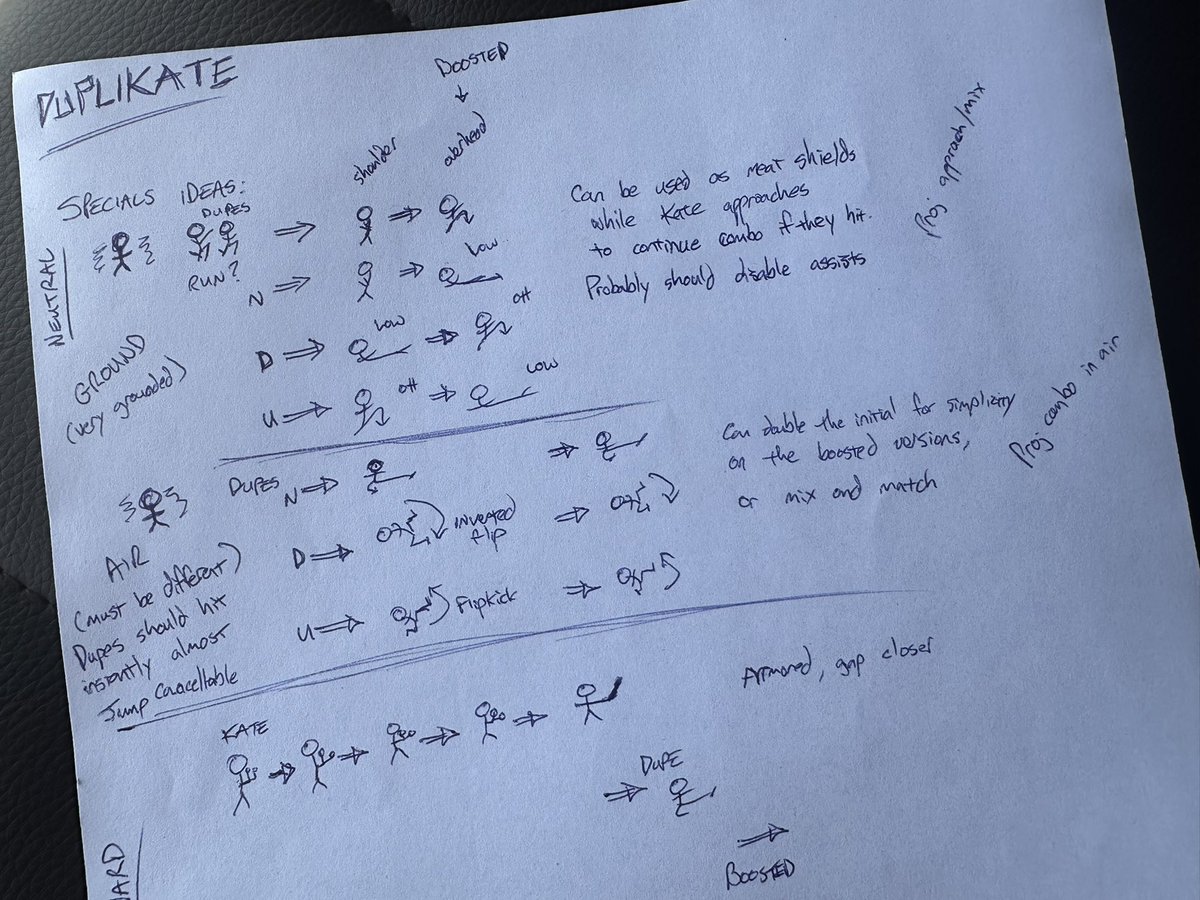 DUPLIKATE
BOOSTED
SPECIALS IDEAS:
shoulder
overhead
NEUTRAL
DUPES
RUN?
Can be used as meat shields
while Kate approaches
to continue combo if they hit.
Probably should disable assists
Proj approach/mix
N
low
GROUND
(very grounded)
D
LOW
OH
U
OH
LOW
DUPES
N
Can double the initial for simplicity
on the boosted versions,
or mix and match
Proj combo in air
AIR
(must be different)
Dupes should hit
instantly almost
Jump Cancellable
D
inverted
flip
U
Flipkick
KATE
Armored, gap closer
DUPE
BOOSTED